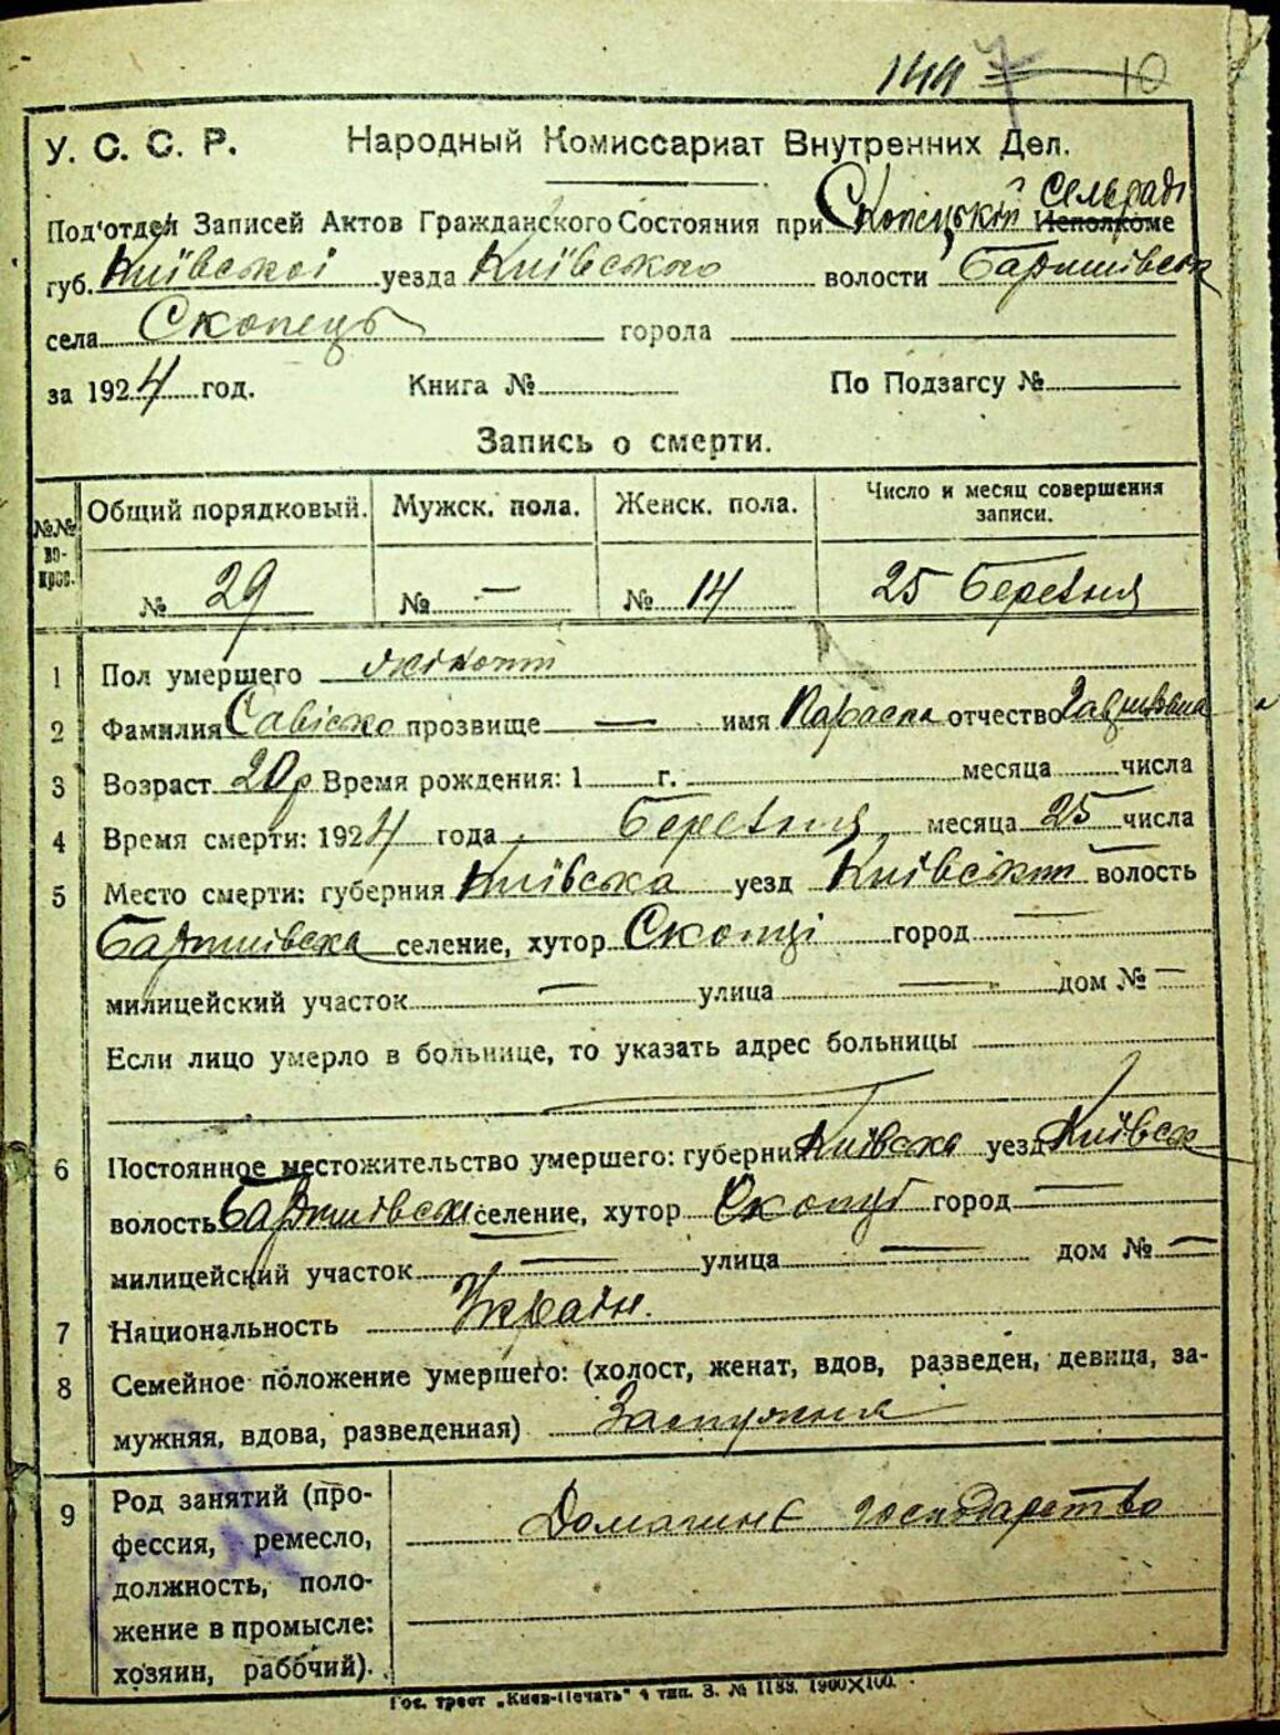 144 7 10
У. С. С. Р. Народный Комиссариат Внутренних Дел.
Под'отдел Записей Актов Гражданского Состояния при Скопецькій Исполкоме Сельраді
губ. Київської уезда Київського волости Баришівськ
села Скопець города
за 1924 год. Книга № По Подзагсу №
Запись о смерти.
№№ вопрос. Общий порядковый. Мужск. пола. Женск. пола. Число и месяц совершения записи.
№ 29 № — № 14 25 Березня
1 Пол умершего
2 Фамилия Савісько прозвище — имя Параска отчество Гавриловна
3 Возраст 20 р Время рождения: 1 г. месяца числа
4 Время смерти: 1924 года Березня месяца 25 числа
5 Место смерти: губерния Київська уезд Київський волость
Баришівська селение, хутор Скопці город —
милицейский участок — улица — дом № —
Если лицо умерло в больнице, то указать адрес больницы
6 Постоянное местожительство умершего: губерния Київська уезд Київськ
волость Баришівськ селение, хутор Скопці город —
милицейский участок — улица — дом № —
7 Национальность Україн.
8 Семейное положение умершего: (холост, женат, вдов, разведен, девица, за-
мужняя, вдова, разведенная) Замужня
9 Род занятий (про-
фессия, ремесло,
должность, поло-
жение в промысле:
хозяин, рабочий).
Домашнє господарство
Гос. трест „Киев-Печать" 4 тип. З. № 1188. 1900×100.